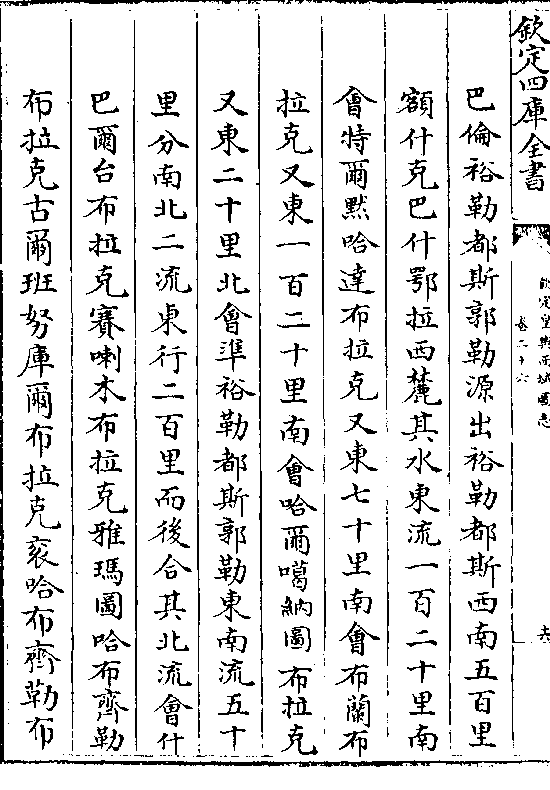 欽定四庫全書
欽定皇輿西域圖志
卷二十六
六
巴倫裕勒都斯郭勒源出裕勒都斯西南五百里
額什克巴什鄂拉西麓其水東流一百二十里南
會特爾默哈達布拉克又東七十里南會布蘭布
拉克又東一百二十里南會哈爾噶納圖布拉克
又東二十里北會準裕勒都斯郭勒東南流五十
里分南北二流東行二百里而後合其北流會什
巴爾台布拉克賽喇木布拉克雅瑪圖哈布齊勒
布拉克古爾班努庫爾布拉克袞哈布齊勒布